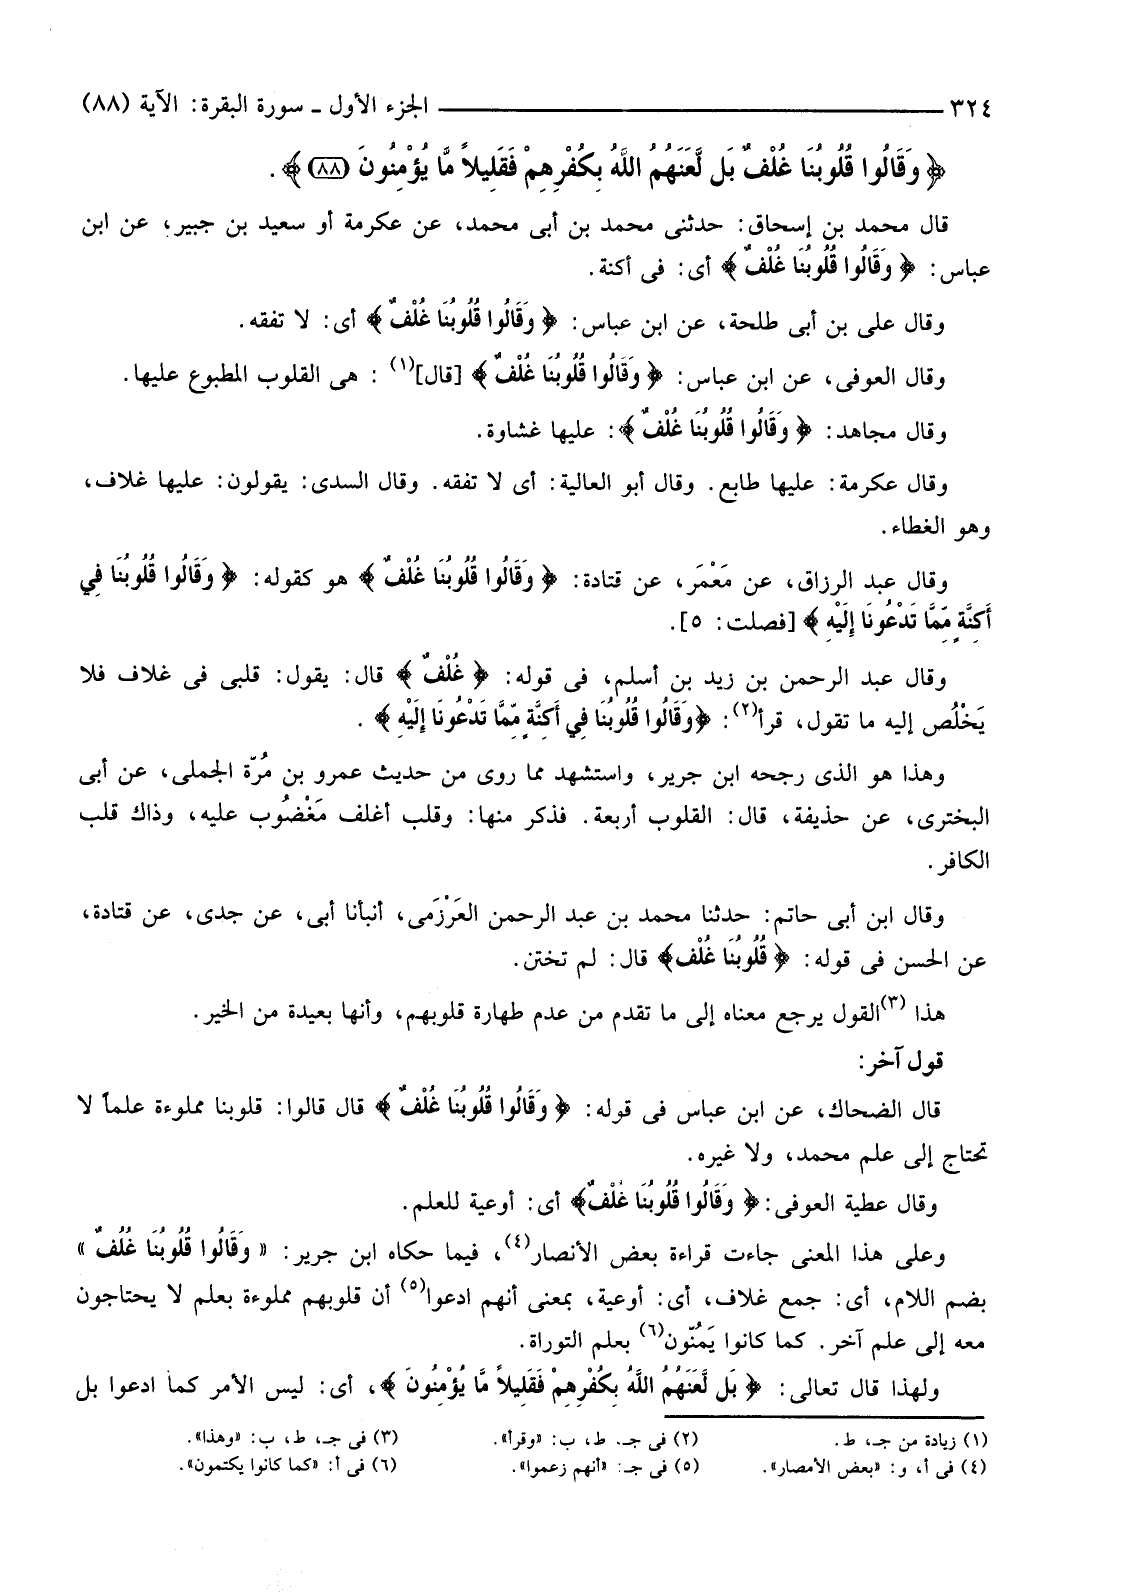 ٣٢٤ ــــــــ الجزء الأول ـ سورة البقرة: الآية (٨٨)
﴿ وَقَالُوا قُلُوبُنَا غُلْفٌ بَل لَّعَنَهُمُ اللَّهُ بِكُفْرِهِمْ فَقَلِيلاً مَّا يُؤْمِنُونَ (٨٨) ﴾ .
قال محمد بن إسحاق: حدثنى محمد بن أبى محمد، عن عكرمة أو سعيد بن جبير، عن ابن
عباس: ﴿ وَقَالُوا قُلُوبُنَا غُلْفٌ ﴾ أى: فى أكنة.
وقال على بن أبى طلحة، عن ابن عباس: ﴿ وَقَالُوا قُلُوبُنَا غُلْفٌ ﴾ أى: لا تفقه.
وقال العوفى، عن ابن عباس: ﴿ وَقَالُوا قُلُوبُنَا غُلْفٌ ﴾ [قال](١) : هى القلوب المطبوع عليها.
وقال مجاهد: ﴿ وَقَالُوا قُلُوبُنَا غُلْفٌ ﴾: عليها غشاوة.
وقال عكرمة: عليها طابع. وقال أبو العالية: أى لا تفقه. وقال السدى: يقولون: عليها غلاف،
وهو الغطاء.
وقال عبد الرزاق، عن مَعْمَر، عن قتادة: ﴿ وَقَالُوا قُلُوبُنَا غُلْفٌ ﴾ هو كقوله: ﴿ وَقَالُوا قُلُوبُنَا فِي
أَكِنَّةٍ مِّمَّا تَدْعُونَا إِلَيْهِ ﴾ [فصلت: ٥].
وقال عبد الرحمن بن زيد بن أسلم، فى قوله: ﴿ غُلْفٌ ﴾ قال: يقول: قلبى فى غلاف فلا
يَخْلُص إليه ما تقول، قرأ(٢): ﴿وَقَالُوا قُلُوبُنَا فِي أَكِنَّةٍ مِّمَّا تَدْعُونَا إِلَيْهِ ﴾ .
وهذا هو الذى رجحه ابن جرير، واستشهد مما روى من حديث عمرو بن مُرّة الجملى، عن أبى
البخترى، عن حذيفة، قال: القلوب أربعة. فذكر منها: وقلب أغلف مَغْضُوب عليه، وذاك قلب
الكافر.
وقال ابن أبى حاتم: حدثنا محمد بن عبد الرحمن العَرْزَمى، أنبأنا أبى، عن جدى، عن قتادة،
عن الحسن فى قوله: ﴿ قُلُوبُنَا غُلْف﴾ قال: لم تختن.
هذا (٣)القول يرجع معناه إلى ما تقدم من عدم طهارة قلوبهم، وأنها بعيدة من الخير.
قول آخر:
قال الضحاك، عن ابن عباس فى قوله: ﴿ وَقَالُوا قُلُوبُنَا غُلْفٌ ﴾ قال قالوا: قلوبنا مملوءة علماً لا
تحتاج إلى علم محمد، ولا غيره.
وقال عطية العوفى: ﴿ وَقَالُوا قُلُوبُنَا غُلْفٌ﴾ أى: أوعية للعلم.
وعلى هذا المعنى جاءت قراءة بعض الأنصار(٤)، فيما حكاه ابن جرير: « وَقَالُوا قُلُوبُنَا غُلُفٌ »
بضم اللام، أى: جمع غلاف، أى: أوعية، بمعنى أنهم ادعوا(٥) أن قلوبهم مملوءة بعلم لا يحتاجون
معه إلى علم آخر. كما كانوا يَمُنّون(٦) بعلم التوراة.
ولهذا قال تعالى: ﴿ بَل لَّعَنَهُمُ اللَّهُ بِكُفْرِهِمْ فَقَلِيلاً مَّا يُؤْمِنُونَ ﴾، أى: ليس الأمر كما ادعوا بل
(١) زيادة من جـ، ط. (٢) فى جـ، ط، ب: «وقرأ». (٣) فى جـ، ط، ب: «وهذا».
(٤) فى أ، و: «بعض الأمصار». (٥) فى جـ: «أنهم زعموا». (٦) فى أ: «كما كانوا يكتمون».